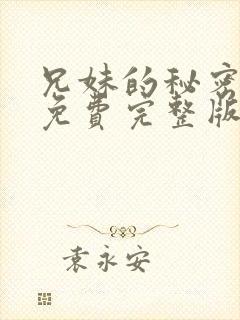 兄妹的秘密
免費完整版
袁永安